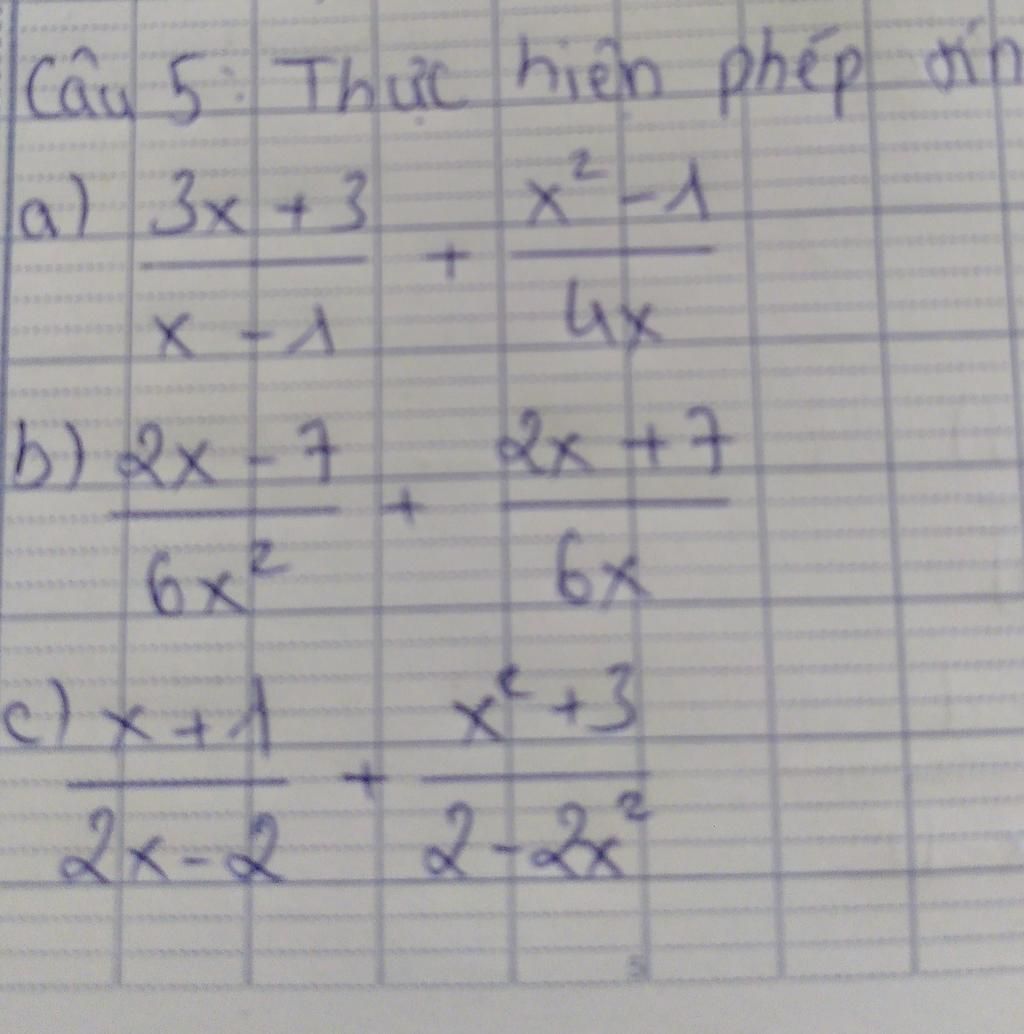 Câu 5: Thực hiện phép tín
a) (3x + 3)/(x - 1) + (x² - 1)/(4x)
b) (2x - 7)/(6x²) + (2x + 7)/(6x)
c) (x + 1)/(2x - 2) + (x² + 3)/(2 - 2x²)